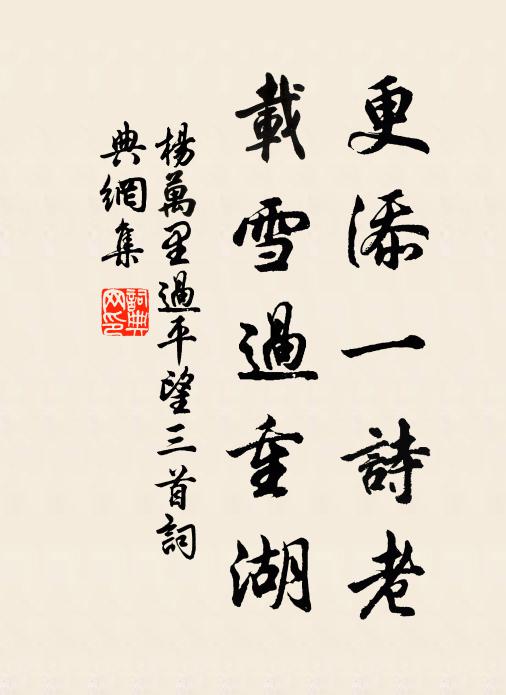 更添一詩老
載雪過重湖
楊萬里過平望三首詞
典網集
詞典
网印